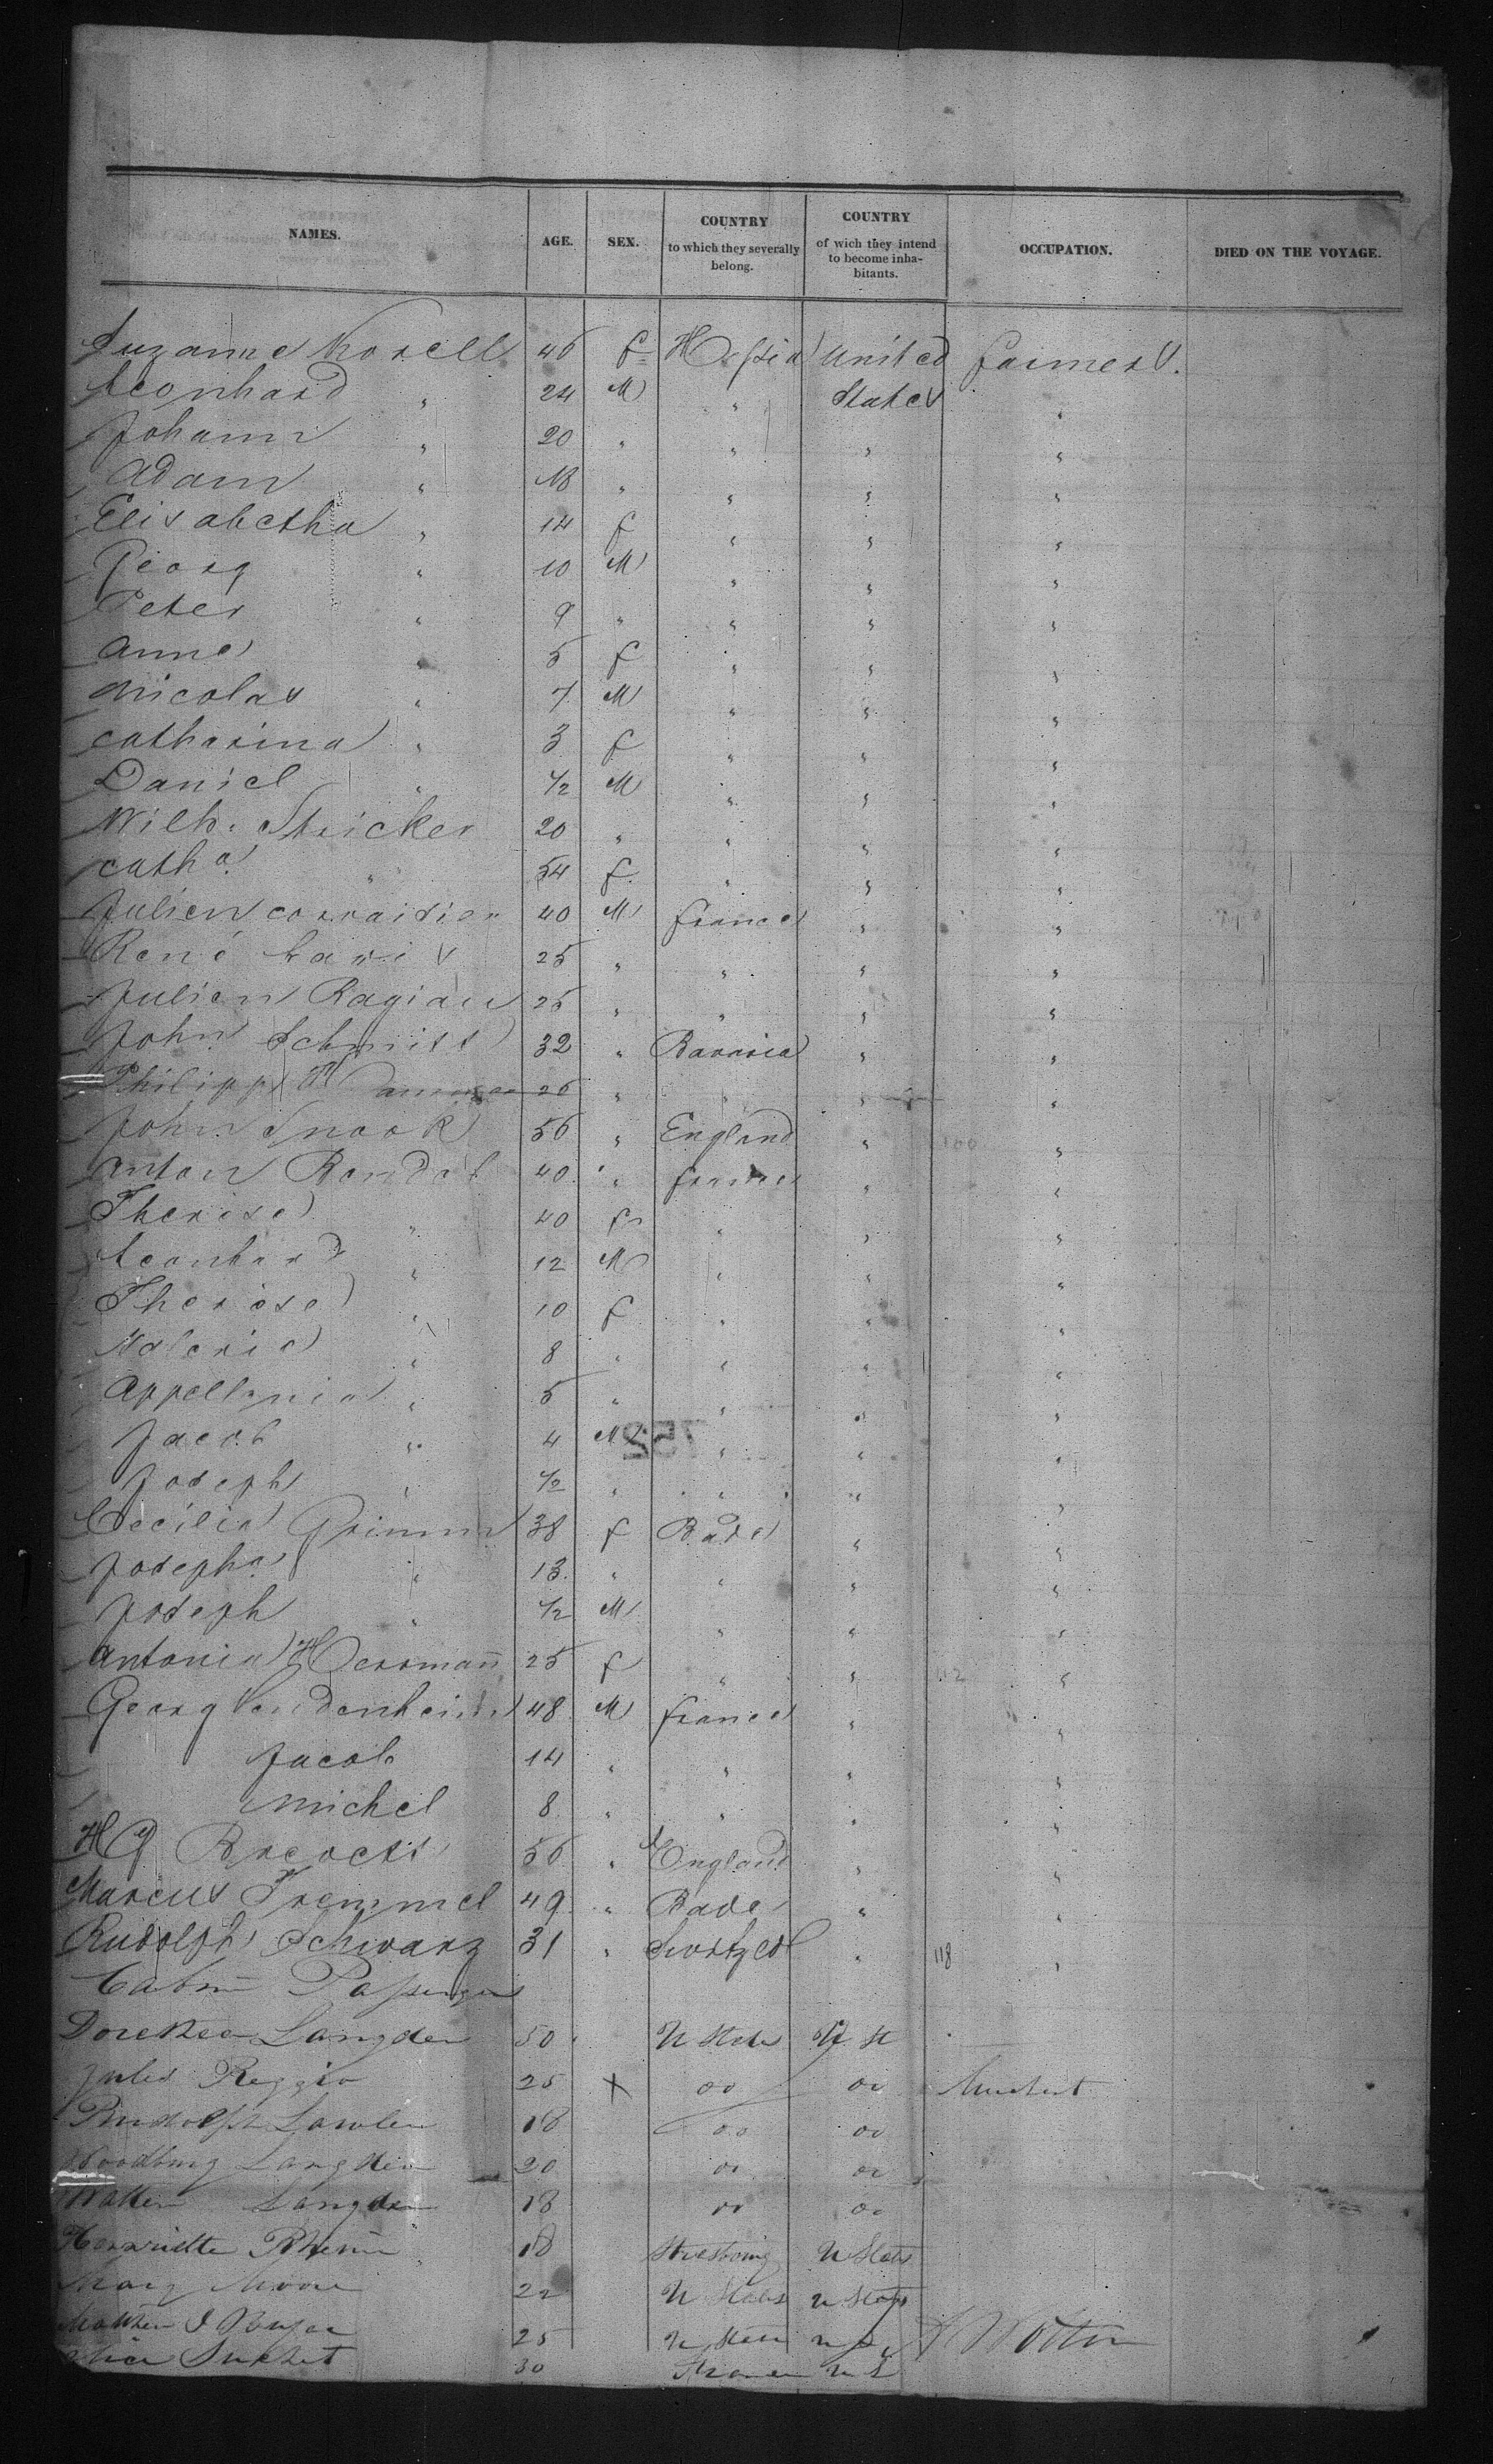 NAMES. AGE. SEX. COUNTRY to which they severally belong. COUNTRY of wich they intend to become inhabitants. OCCUPATION. DIED ON THE VOYAGE.
Suzanne Korell 46 f Hessia United farmers.
Leonhard " 24 M " States "
Johann " 20 " " " "
Adam " 18 " " " "
Elisabetha " 14 f " " "
Georg " 10 M " " "
Peter " 9 " " " "
Anne " 5 f " " "
Nicolas " 7 M " " "
Catharina " 3 f " " "
Daniel " 1/2 M " " "
Wilh. Stricker 20 " " " "
Catha. " 54 f " " "
Julien 40 M France " "
René 25 " " " "
Julien Ragiau 25 " " " "
John Schmitt 32 " Bavaria " "
Philipp 26 " " " "
John Snook 56 " England " "
Anton 40 " France " "
Therese " 40 f " " "
Leonhard " 12 M " " "
Therese " 10 f " " "
Valerie " 8 " " " "
Appellonia " 5 " " " "
Jacob " 4 M " " "
752
Joseph " 1/2 " " " "
Cecilia Grimm 38 f Bade " "
Josepha " 13 " " " "
Joseph " 1/2 M " " "
Antonia Herrmann 25 f " " "
Georg Vendenheim 48 M France " "
Jacob 14 " " " "
Michel 8 " " " "
H G 56 " England " "
Marcus Tremmel 49 " Bade " "
Rudolph Schwarz 31 " " 118 "
Cabin Passengers
Langdon 50 U States U St
Jules Reggio 25 X do do
18 do do
Woodbury Langdon 20 do do
Walter Langdon 18 do do
Henriette 18 U States
Mary Moore 22 U States U States
25 U States U S
30 U S